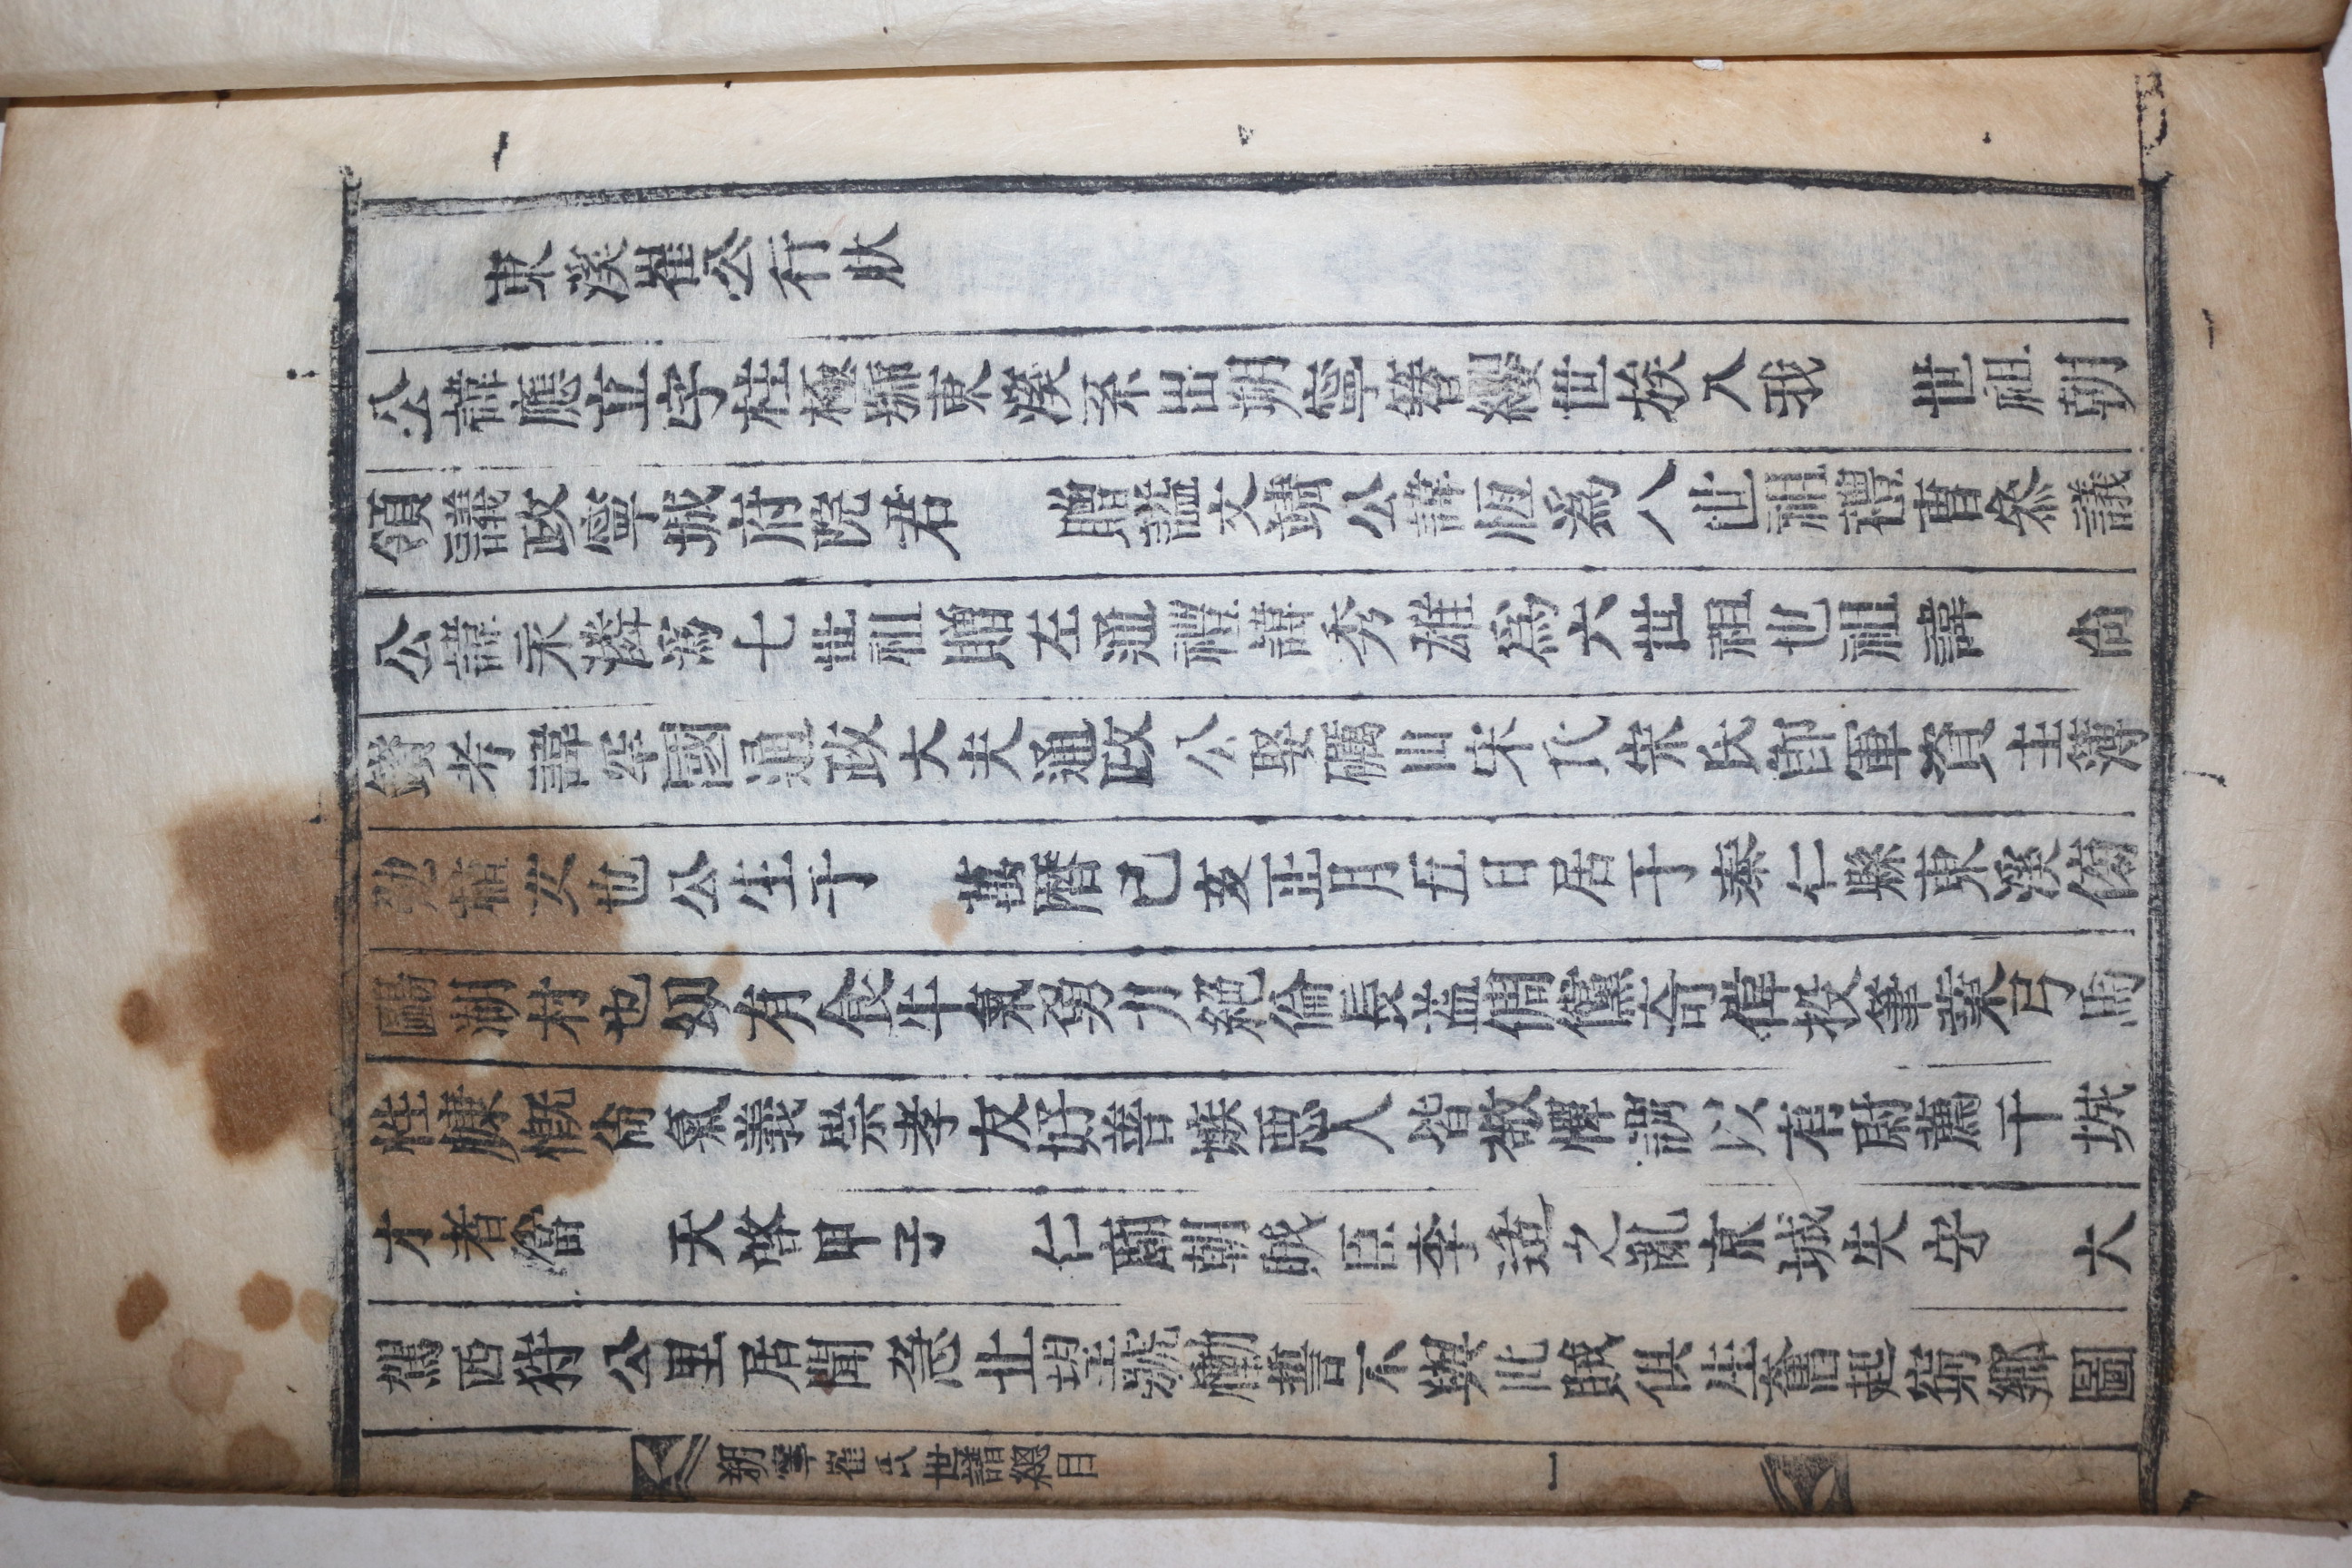 東溪崔公行狀
公諱應立字柱極號東溪系出朔寧簪纓世族入我 世祖朝
領議政寧城府院君 贈諡文靖公諱恒爲八世祖禮曹叅議
公諱永潾爲七世祖贈左通禮諱秀雄爲六世祖也祖諱 尙
考諱平國通政大夫通政公娶礪山宋氏宋氏卽軍資主簿
諱女也公生于 萬曆己亥正月五日居于泰仁縣東溪
湖村也幼有食牛氣勇力絕倫長益倜儻奇偉投筆業弓馬
性慷慨尙氣義崇孝友好善嫉惡人皆敬憚謂以有尉薦干城
才者 天啓甲子 仁廟朝賊臣李适之亂京城失守 大
駕西狩公里居聞卽北望號慟誓不與此賊俱生奮起窮鄕圖
朔寧崔氏世譜綴目 一